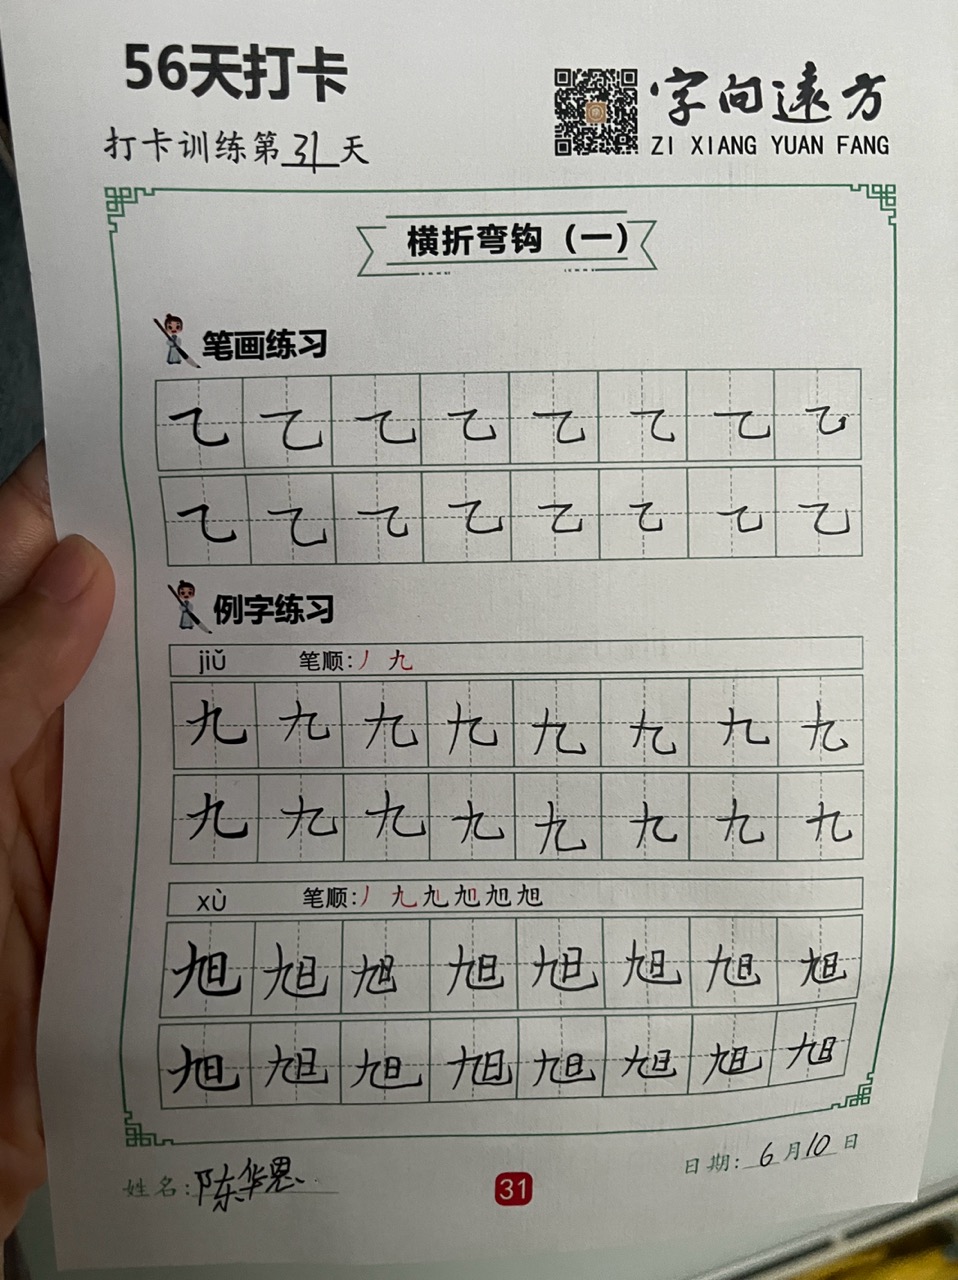 56天打卡
字向遠方
ZI XIANG YUAN FANG
打卡训练第31天
横折弯钩（一）
笔画练习
乙 乙 乙 乙 乙 乙 乙 乙
乙 乙 乙 乙 乙 乙 乙 乙
例字练习
jiǔ 笔顺:丿 九
九 九 九 九 九 九 九 九
九 九 九 九 九 九 九 九
xù 笔顺:丿 九 九 旭 旭 旭
旭 旭 旭 旭 旭 旭 旭 旭
旭 旭 旭 旭 旭 旭 旭 旭
姓名:陈华恩
31
日期:6月10日